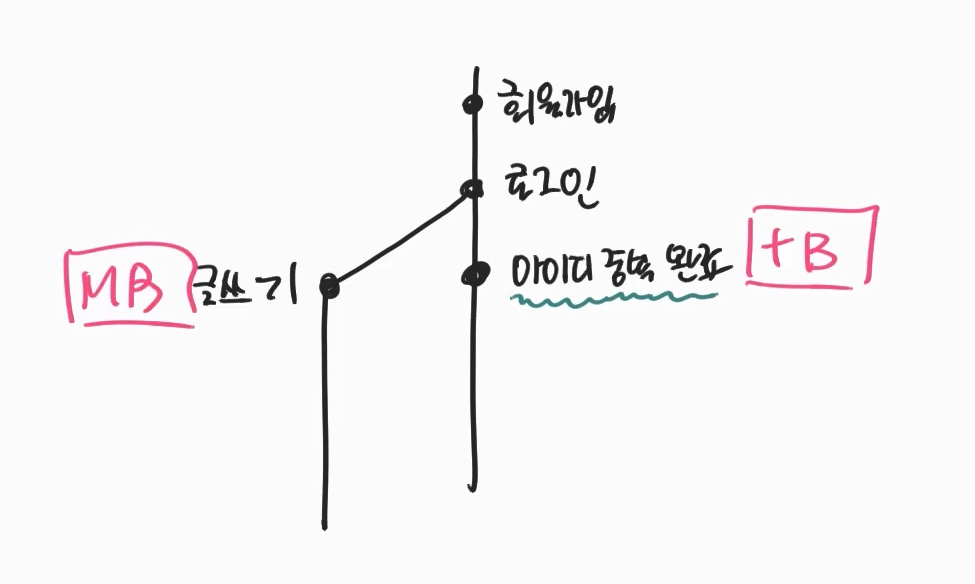 회원가입
로그인
MB 글쓰기
아이디 중복 완료 +B